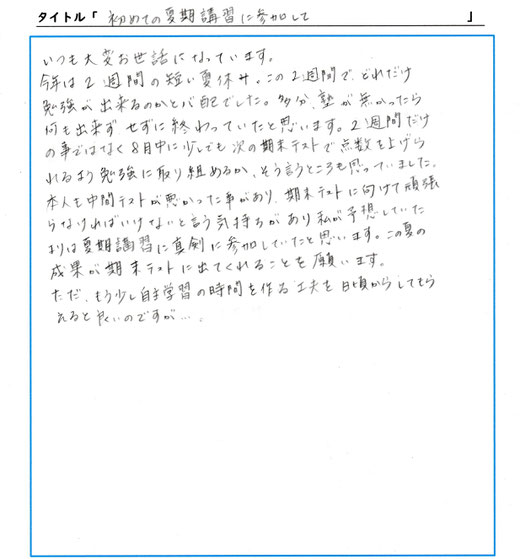 タイトル「 初めての夏期講習に参加して 」
いつも大変お世話になっています。
今年は2週間の短い夏休み。この2週間で、どれだけ
勉強が出来るのか心配でした。多分、塾が無かったら
何も出来ず、せずに終わっていたと思います。2週間だけ
の事ではなく8月中に少しでも次の期末テストで点数を上げら
れるよう勉強に取り組めるか、そう言うところも思っていました。
本人も中間テストが悪かった事があり、期末テストに向けて頑張
らなければいけないと言う気持ちがあり私が予想していた
よりは夏期講習に真剣に参加していたと思います。この夏の
成果が期末テストに出てくれることを願います。
ただ、もう少し自主学習の時間を作る工夫を日頃からしてもら
えると良いのですが…。